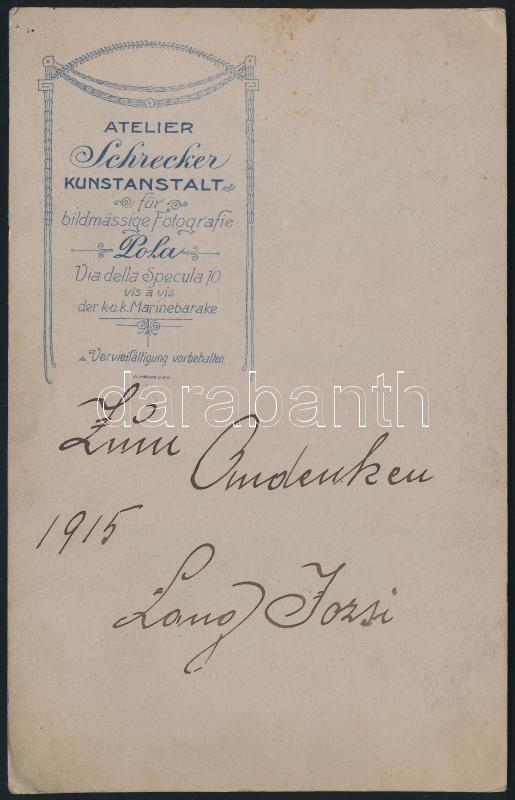 ATELIER
Schrecker
KUNSTANSTALT
für
bildmässige Fotografie
Pola
Via della Specula 10.
vis à vis
der k.u.k. Marinebarake
Vervielfältigung vorbehalten.
darabanth
Zum Andenken
1915
Lang Jozsi